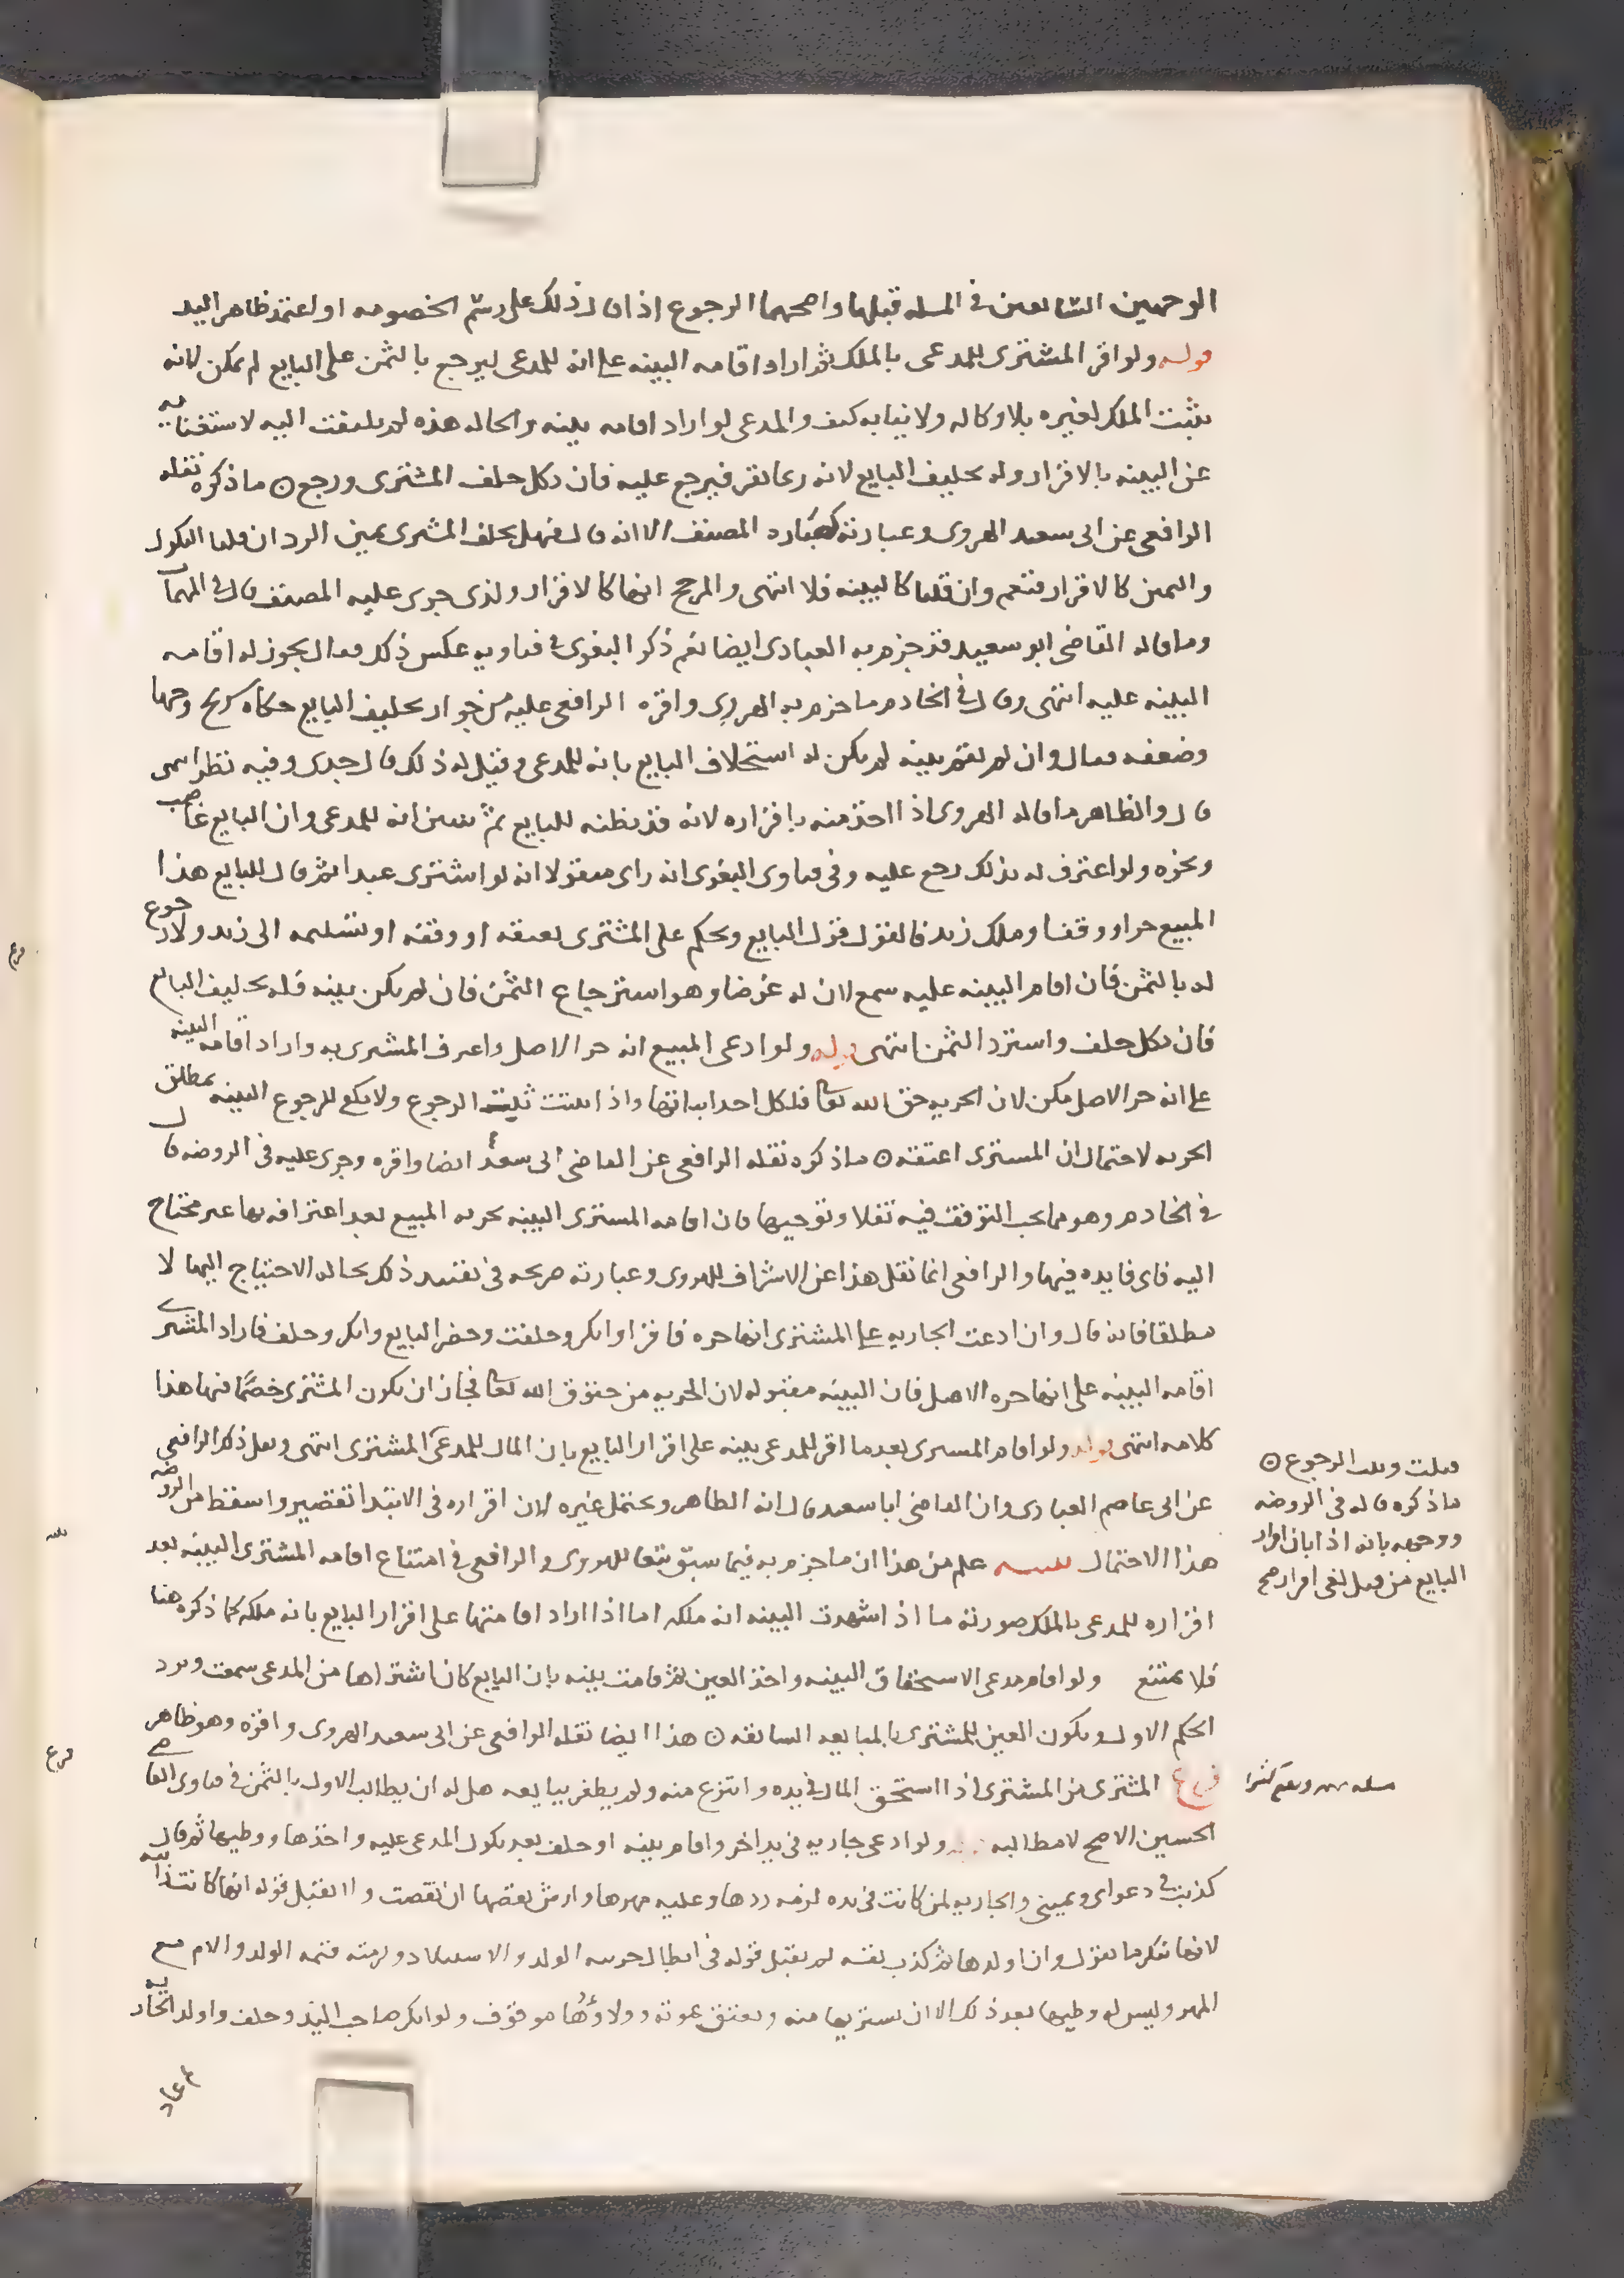 الوجهين السابعين في المسله قبلها واصحهما الرجوع اذا قال ذلك على رسم الخصومه او اعتمد ظاهر اليد
قوله ولو اقر المشتري للمدعي بالملك ثم اراد اقامه البينه على انه للمدعي ليرجع بالثمن على البايع لم يمكن لانه
يثبت الملك لغيره بلا وكاله ولا نيابه كيف والمدعي لو اراد اقامه بينه والحاله هذه لم يلتفت اليه لاستغنايه
عن البينه بالاقرار وله تحليف البايع لانه ربما يقر فيرجع عليه فان نكل حلف المشتري ورجع ه ما ذكره نقله
الرافعي عن ابي سعيد الهروي وعبارته كعباره المصنف الا انه قال فهل يحلف المشتري يمين الرد ان قلنا النكول
واليمين كالاقرار فنعم وان قلنا كالبينه فلا انتهى والمرجح انها كالاقرار ولذي جرى عليه المصنف قال في المهمات
وما قاله القاضي ابو سعيد قد جزم به العبادي ايضا نعم ذكر البغوي في فتاويه عكس ذلك فقال يجوز له اقامه
البينه عليه انتهى وقال في الخادم ما جزم به الهروي واقره الرافعي عليه من جواز تحليف البايع حكاه شريح وجها
وضعفه فقال وان لم تقم بينه لم يكن له استحلاف البايع بانه للمدعي وقيل له ذلك قال جدي وفيه نظر انتهى
قال والظاهر ما قاله الهروي اذا اخذ منه باقراره لانه قد يظنه للبايع ثم تبين انه للمدعي وان البايع غاصب
ونحوه ولو اعترف له بذلك رجع عليه وفي فتاوى البغوي انه راى منقولا انه لو اشترى عبدا ثم قال للبايع هذا
المبيع حر او وقف او ملك زيد فالقول قول البايع ويحكم على المشتري بعتقه او وقفه او تسليمه الى زيد ولا رجوع
له بالثمن فان اقام البينه عليه سمع لان له غرضا وهو استرجاع الثمن فان لم يكن بينه فله تحليف البايع
فان نكل حلف واسترد الثمن انتهى قوله ولو ادعى المبيع انه حر الاصل واعترف المشتري به واراد اقامه البينه
على انه حر الاصل مكن لان الحريه حق الله تعالى فلكل احد اثباتها واذا ثبتت ثبت الرجوع ولا يكفي للرجوع البينه بمطلق
الحريه لاحتمال ان المشتري اعتقه ه ما ذكره نقله الرافعي عن القاضي ابي سعد ايضا واقره وجرى عليه في الروضه قال
في الخادم وهو مما يجب التوقف فيه نقلا وتوجيها فان اقامه المشتري البينه بحريه المبيع بعد اعترافه بها غير محتاج
اليه فاي فايده فيها والرافعي انما نقل هذا عن الاشراف للهروي وعبارته صريحه في تقييد ذلك بحاله الاحتياج اليها لا
مطلقا فانه قال وان ادعت الجاريه على المشتري انها حره فاقر او انكر وحلفت وحضر البايع وانكر وحلف فاراد المشتري
اقامه البينه على انها حره الاصل فان البينه مقبوله لان الحريه من حقوق الله تعالى فجاز ان يكون المشتري خصما فيها هذا
كلامه انتهى قوله ولو اقام المشتري بعد ما اقر للمدعي بينه على اقرار البايع بان المال للمدعي المشتري انتهى ونقل ذكر الرافعي
عن ابي عاصم العبادي وان القاضي ابا سعيد قال انه الظاهر ويحتمل غيره لان اقراره في الابتدا تقصير واسقط من الروضه
هذا الاحتمال تنبيه علم من هذا ان ما جزم به فيما سبق تبعا للهروي والرافعي في امتناع اقامه المشتري البينه بعد
اقراره للمدعي بالملك صورته ما اذا شهدت البينه انه ملكه اما اذا اراد اقامتها على اقرار البايع بانه ملكه كما ذكره هنا
فلا يمتنع ولو اقام مدعي الاستحقاق البينه واخذ العين ثم قامت بينه بان البايع كان اشتراها من المدعي سمعت ويرد
الحكم الاول ويكون العين للمشتري بالمبايعه السابقه ه هذا ايضا نقله الرافعي عن ابي سعيد الهروي واقره وهو ظاهر
فرع المشتري من المشتري اذا استحق المال في يده وانتزع منه ولم يظفر ببايعه هل له ان يطالب الاول بالثمن في فتاوى القاضي
الحسين الاصح لا مطالبه قوله ولو ادعى جاريه في يد اخر واقام بينه او حلف بعد نكول المدعى عليه واخذها ووطيها ثم قال
كذبت في دعواي ويميني والجاريه لمن كانت في يده لزمه ردها وعليه مهرها وارش نقصها ان نقصت ولا يقبل قوله انها كانت زانيه
لانها تنكر ما يقول وان اولدها ثم كذب نفسه لم يقبل قوله في ابطال حريه الولد والاستيلاد ولزمته قيمه الولد والام مع
المهر وليس له وطيها بعد ذلك الا ان يشتريها منه وتعتق بموته وولاؤها موقوف ولو انكر صاحب اليد وحلف واولد الجاريه
ثم عاد
قبلت وثبت الرجوع ه
ما ذكره قاله في الروضه
ووجهه بانه اذا بان اقرار
البايع من قبل لغى اقراره صح
فرع
تنبيه
فرع